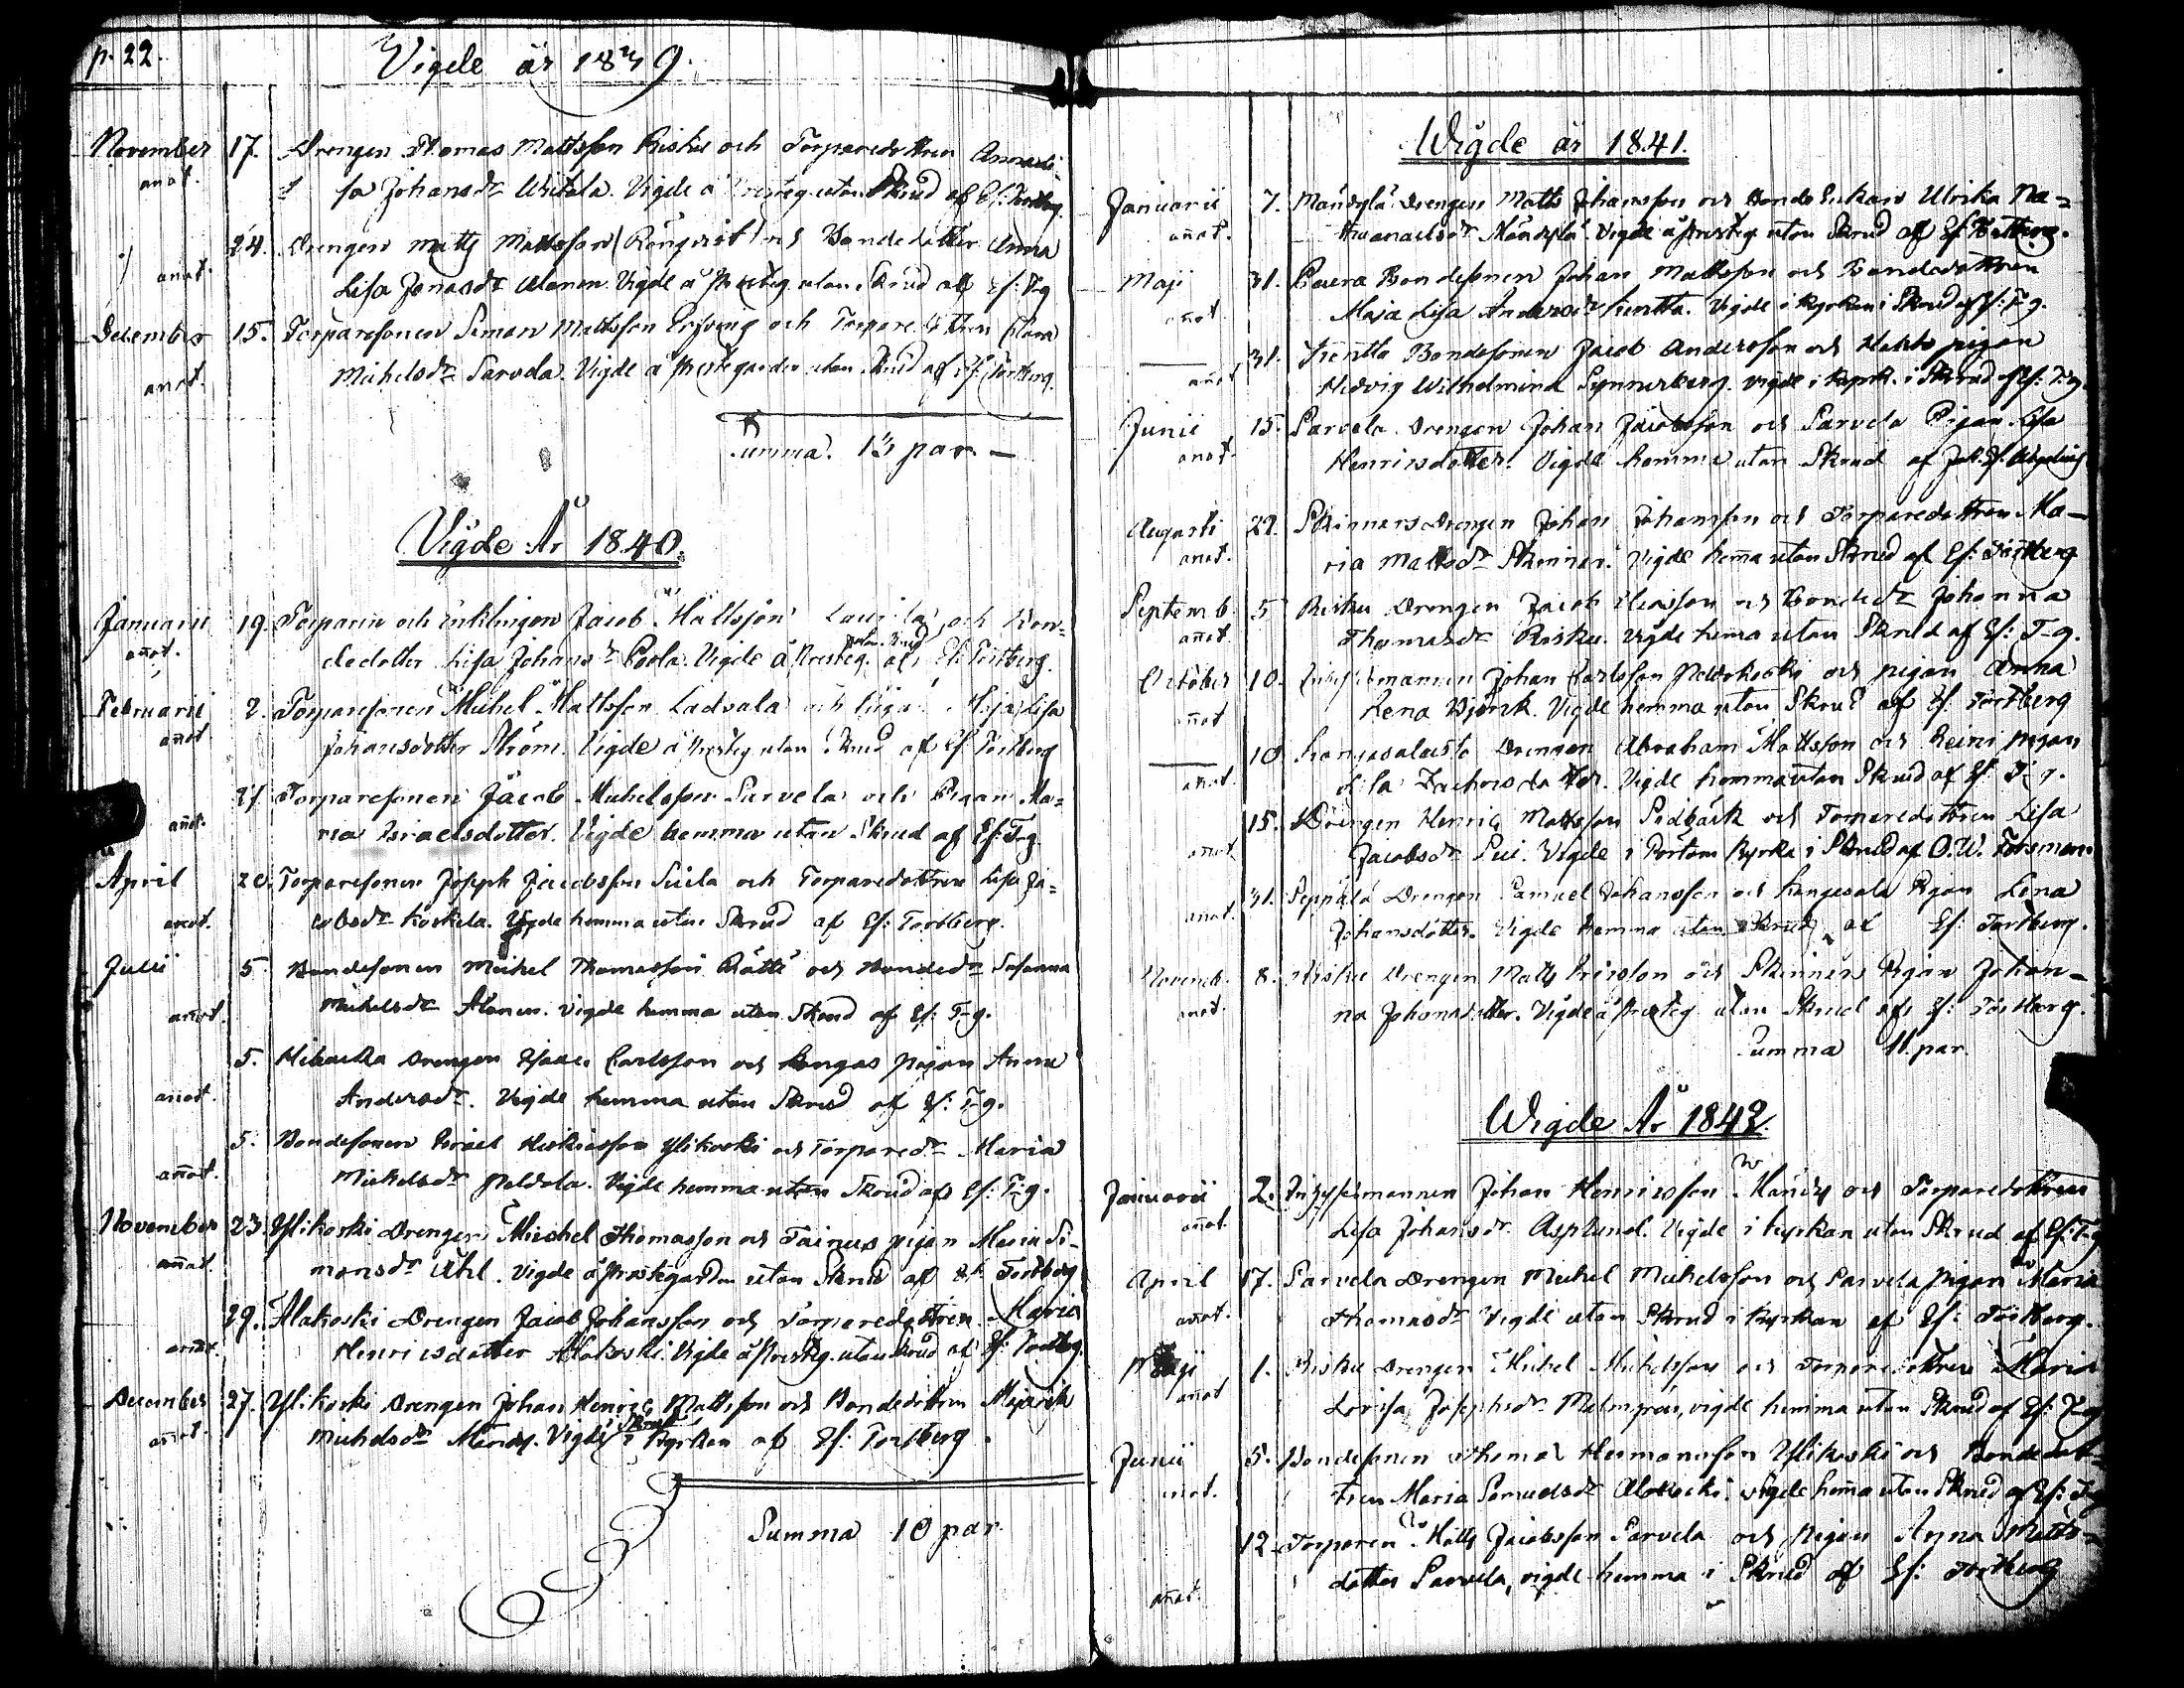 p. 22.
Vigde år 1839.
November 17. Drengen Thomas Mattsson Risku och Torparedottren Annali-
anot. sa Johansdr Uhitala. Vigde å Presteg. utan Skrud af Ef: Forsberg.
24. Drengen Matts Mattsson (Rönqvist) och Bondedotter Anna
anot. Lisa Jonasdr Alanen. Vigde å Presteg. utan Skrud af Ef: F-g
December 15. Torparesonen Simon Mattsson och Torparedottren Clara
anot. Michelsdr Sarvela. Vigde å Prestegården utan Skrud af Ef: Forsberg.
Summa. 13 par. —
Vigde År 1840.
Januarii 19. Torparen och Enklingen Jacob Mattsson Laurila, och Bon-
anot. dedotter Lisa Johansdr Poola. Vigde å Presteg. utan Skrud af Ef: Forsberg.
Februarii 2. Torparesonen Michel Mattsson Ladvala och Pigan Maja Lisa
anot. Johansdotter Ström. Vigde å Presteg. utan Skrud af Ef: Forsberg
21. Torparesonen Jacob Michelsson Sarvela och Pigan Ma-
anot. ria Israelsdotter. Vigde hemma utan Skrud af Ef: F-g.
April 20. Torparesonen Joseph Jacobsson Suila och Torparedottren Lisa Ja-
anot. cobsdr Koskela. Vigde hemma utan Skrud af Ef: Forsberg.
Julii 5 Bondesonen Michel Thomasson Rätti och Bondedr Susanna
anot. Michelsdr Alanen. Vigde hemma utan Skrud af Ef: F-g.
5. Hibacka Drengen Isaac Carlsson och Kangas pigan Anna
anot. Andersdr. Vigde hemma utan Skrud af Ef: F-g.
5. Bondesonen Israel Ylikoski och Torparedr Maria
anot. Michelsdr Peldola. Vigde hemma utan Skrud af Ef: F-g.
November 23. Ylikoski Drengen Michel Thomasson och Tainus pigan Maria Si-
anot. monsdr Uhl. Vigde å Prestegården utan Skrud af Ef: Forsberg
29. Alakoski Drengen Jacob Johansson och Torparedottren Maria
anot. Henricsdotter Alakoski. Vigde å Presteg. utan Skrud af Ef: Forsberg.
December 27. Ylikoski Drengen Johan Henric Mattsson och Bondedottren Maja
anot. Michelsdr Mändy. Vigde i Skrud i Kyrkan af Ef: Forsberg.
Summa 10 par.
Wigde år 1841.
Januarii 7. Mändylä Drengen Matts Johansson och Bonde Enkan Ulrika Na-
anot. thanaelsdr Mändylä. Vigde å Presteg. utan Skrud af Ef: Forsberg.
Maji 31. Bondesonen Johan Mattsson och Bondedottren
anot. Maja Lisa Andersdr Kenttä. Vigde i Kyrkan i Skrud af Ef: F-g.
— 31. Kenttä Bondesonen Jacob Andersson och pigan
anot. Hedvig Wilhelmina Synnerberg. Vigde i Kyrk. i Skrud af Ef: F-g.
Junii 15. Sarvela Drengen Johan Jacobsson och Sarvela Pigan Lisa
anot. Henricsdotter. Vigde hemma utan Skrud af
Augusti 22. Skinnars Drengen Johan Johansson och Torparedottren Ma-
anot. ria Mattsdr Skinnar. Vigde hema utan Skrud af Ef: Forsberg
Septemb. 5 Risku Drengen Jacob Eliasson och Bondedr Johanna
anot. Thomasdr Risku. Vigde hema utan Skrud af Ef: F-g.
October 10. Johan Carlsson och pigan Anna
anot. Lena Björk. Vigde hemma utan Skrud af Ef: Forsberg
— 10 Drengen Abraham Mattsson och pigan
anot. Vigde hemma utan Skrud af Ef: F-g.
15. Drengen Henric Mattsson Sidbäck och Torparedottren Lisa
anot. Jacobsdr Pui. Vigde i Portom Kyrka i Skrud af O. W. Forsman.
31. Seppälä Drengen Samuel Johansson och Kangesala Pigan Lena
anot. Johansdotter. Vigde hemma utan Skrud af Ef: Forsberg.
Novemb. 8. Risku Drengen Matts Ericsson och Skinnar Pigan Johan-
anot. na Johansdotter. Vigde å Presteg. utan Skrud af Ef: Forsberg.
Summa 11. par.
Wigde År 1842.
Januarii 2. Inhysesmannen Johan Henricsson Mändy och Torparedottren
anot. Lisa Johansdr Asplund. Vigde i Kyrkan utan Skrud af Ef: F-g
April 17. Sarvela Drengen Michel Michelsson och Sarvela pigan Maria
anot. Thomasdr Vigde utan Skrud i Kyrkan af Ef: Forsberg.
Maji 1. Risku Drengen Michel Michelsson och Torparedottren Maria
anot Lovisa Josephsdr Malmgren, vigde hemma utan Skrud af Ef: F-g
Junii 5. Bondesonen Thomas Hermansson Ylikoski och Bondedot-
anot. tren Maria Samuelsdr Alakoski. Vigde hema utan Skrud af Ef: F-g
12. Torparen Matts Jacobsson Sarvela och Pigan Anna Matts-
anot. dotter Sarvela, vigde hemma i Skrud af Ef: Forsberg